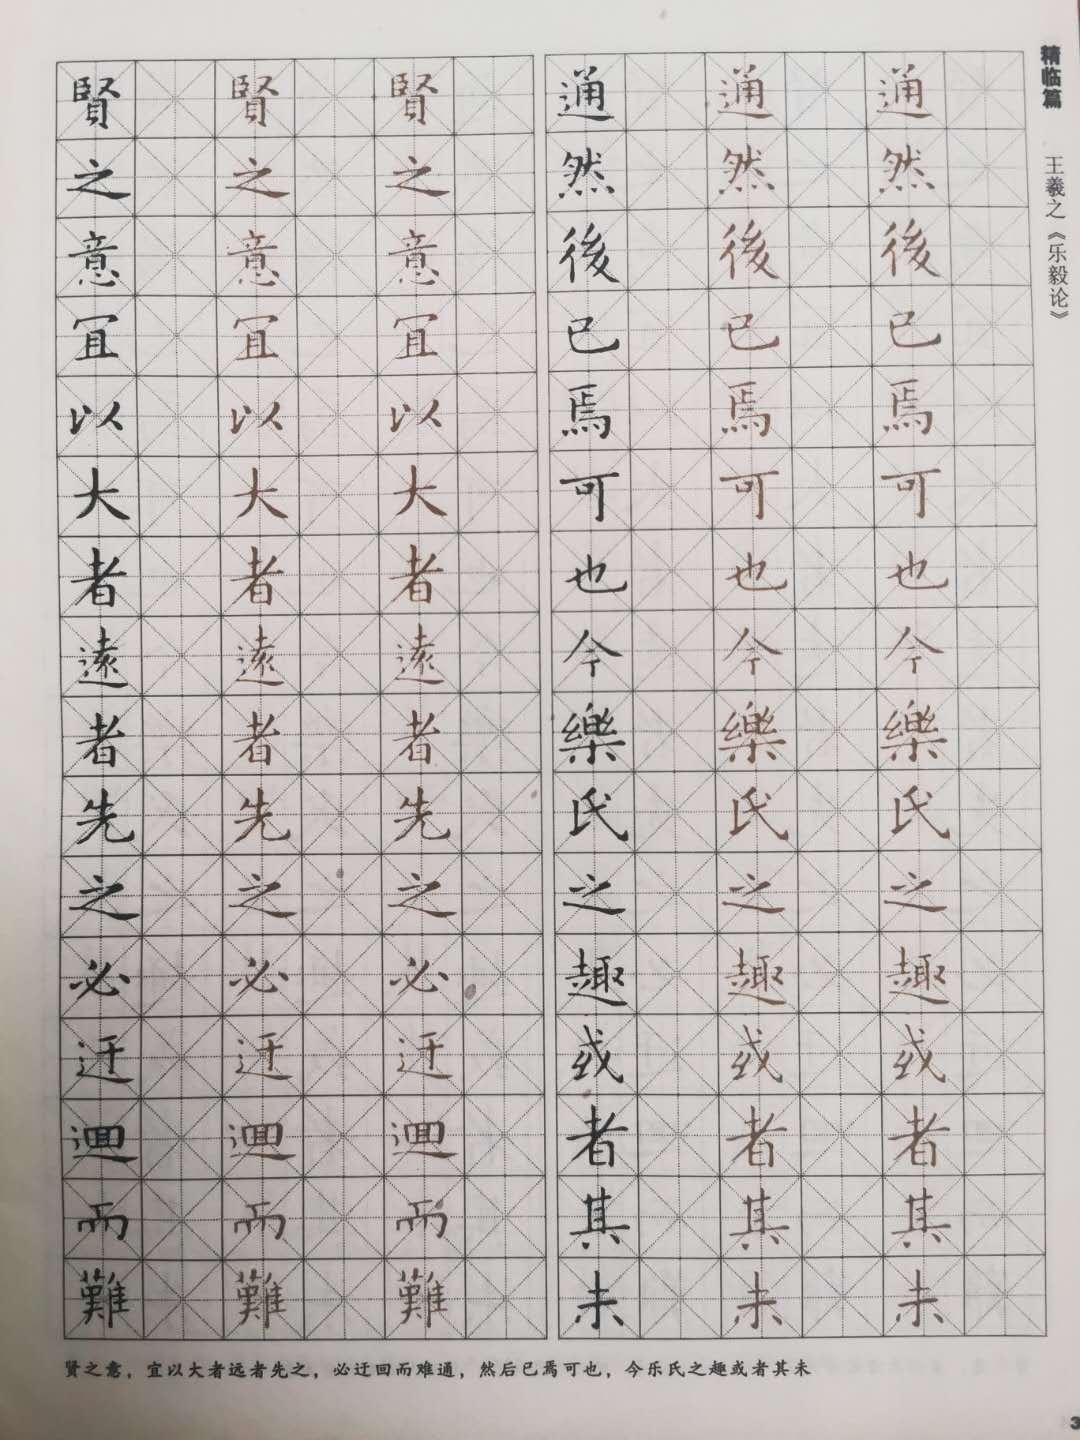 精临篇
王羲之《乐毅论》
賢之意冝以大者遠者先之必迂迴而難
賢之意冝以大者遠者先之必迂迴而難
賢之意冝以大者遠者先之必迂迴而難
通然後已焉可也今樂氏之趣或者其未
通然後已焉可也今樂氏之趣或者其未
通然後已焉可也今樂氏之趣或者其未
贤之意，宜以大者远者先之，必迂回而难通，然后已焉可也，今乐氏之趣或者其未
3